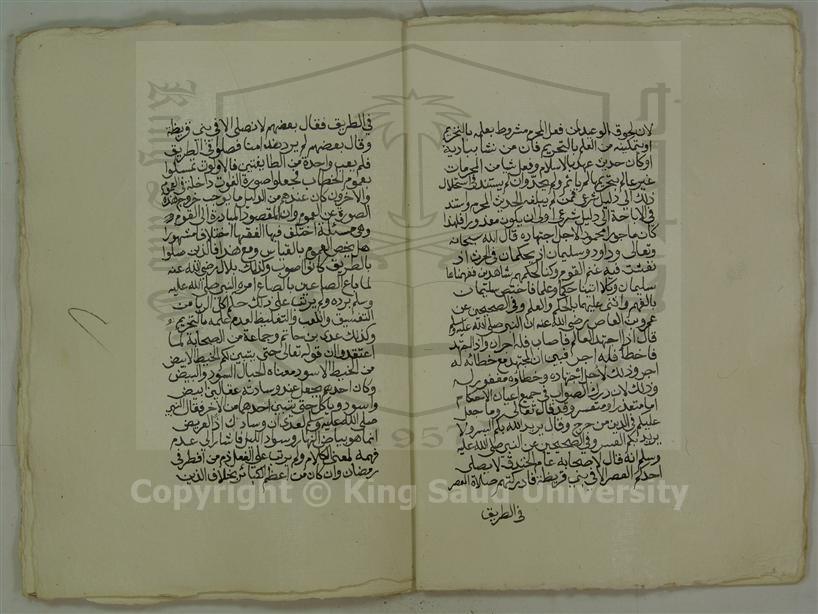 لان لحوق الوعيد لمن فعل المحرم مشروط بعلمه بالتحريم
او بتمكنه من العلم بالتحريم فان من نشا ببادية
او كان حديث عهد بالاسلام وفعل شيا من المحرمات
غير عالم بتحريمها لم ياثم ولم يحد وان لم يستند في استحلال
ذلك الى دليل شرعي فمن لم يبلغه الحديث المحرم واستند
في الاباحة الى دليل شرعي اولى ان يكون معذورا فلهذا
كان ماجورا محمودا لاجل اجتهاده قال الله سبحانه
وتعالى وداود وسليمان اذ يحكمان في الحرث اذ
نفشت فيه غنم القوم وكنا لحكمهم شاهدين ففهمناها
سليمان وكلا اتينا حكما وعلما فاختص سليمان
بالفهم واثنى عليهما بالحكم والعلم وفي الصحيحين عن
عمرو بن العاص رضي الله عنه ان النبي صلى الله عليه وسلم
قال اذا اجتهد العالم فاصاب فله اجران واذا اجتهد
فاخطا فله اجر فبين ان المجتهد مع خطائه له
اجر وذلك لاجل اجتهاده وخطاؤه مغفور له
وذلك لان درك الصواب في جميع اعيان الاحكام
اما متعذر او متعسر وقد قال تعالى وما جعل
عليكم في الدين من حرج وقال يريد الله بكم اليسر ولا
يريد بكم العسر وفي الصحيحين عن النبي صلى الله عليه
وسلم انه قال لاصحابه عام الخندق لا يصلين
احدكم العصر الا في بني قريظة فادركتهم صلاة العصر
في الطريق
في الطريق فقال بعضهم لا نصلي الا في بني قريظة
وقال بعضهم لم يرد هذا منا فصلوا في الطريق
فلم يعب واحدة من الطايفتين فالاولون تمسكوا
بعموم الخطاب فجعلوا صورة الفوت داخلة في العموم
والاخرون كان عندهم من الدليل ما يوجب خروج هذه
الصورة عن العموم وان المقصود المبادرة الى القوم
وهي مسئلة اختلف فيها الفقها اختلافا مشهورا
هل يخص العموم بالقياس ومع هذا فالذين صلوا
بالطريق كانوا اصوب وكذلك بلال رضي الله عنه
لما باع الصاعين بالصاع امره النبي صلى الله عليه
وسلم برده ولم يرتب على ذلك حكم اكل الربا من
التفسيق واللعن والتغليظ لعدم علمه بالتحريم
وكذلك عدي بن حاتم وجماعة من الصحابة لما
اعتقدوا ان قوله تعالى حتى يتبين لكم الخيط الابيض
من الخيط الاسود معناه الحبال السود والبيض
وكان احدهم يجعل عند وسادته عقالين ابيض
واسود وياكل حتى يتبين احدهما من الاخر فقال النبي
صلى الله عليه وسلم لعدي ان وسادك اذا لعريض
انما هو بياض النهار وسواد الليل فاشار الى عدم
فهمه لمعنى الكلام ولم يرتب على الفعل ذم من افطر في
رمضان وان كان من اعظم الكبائر بخلاف الذين
Copyright © King Saud University
1957